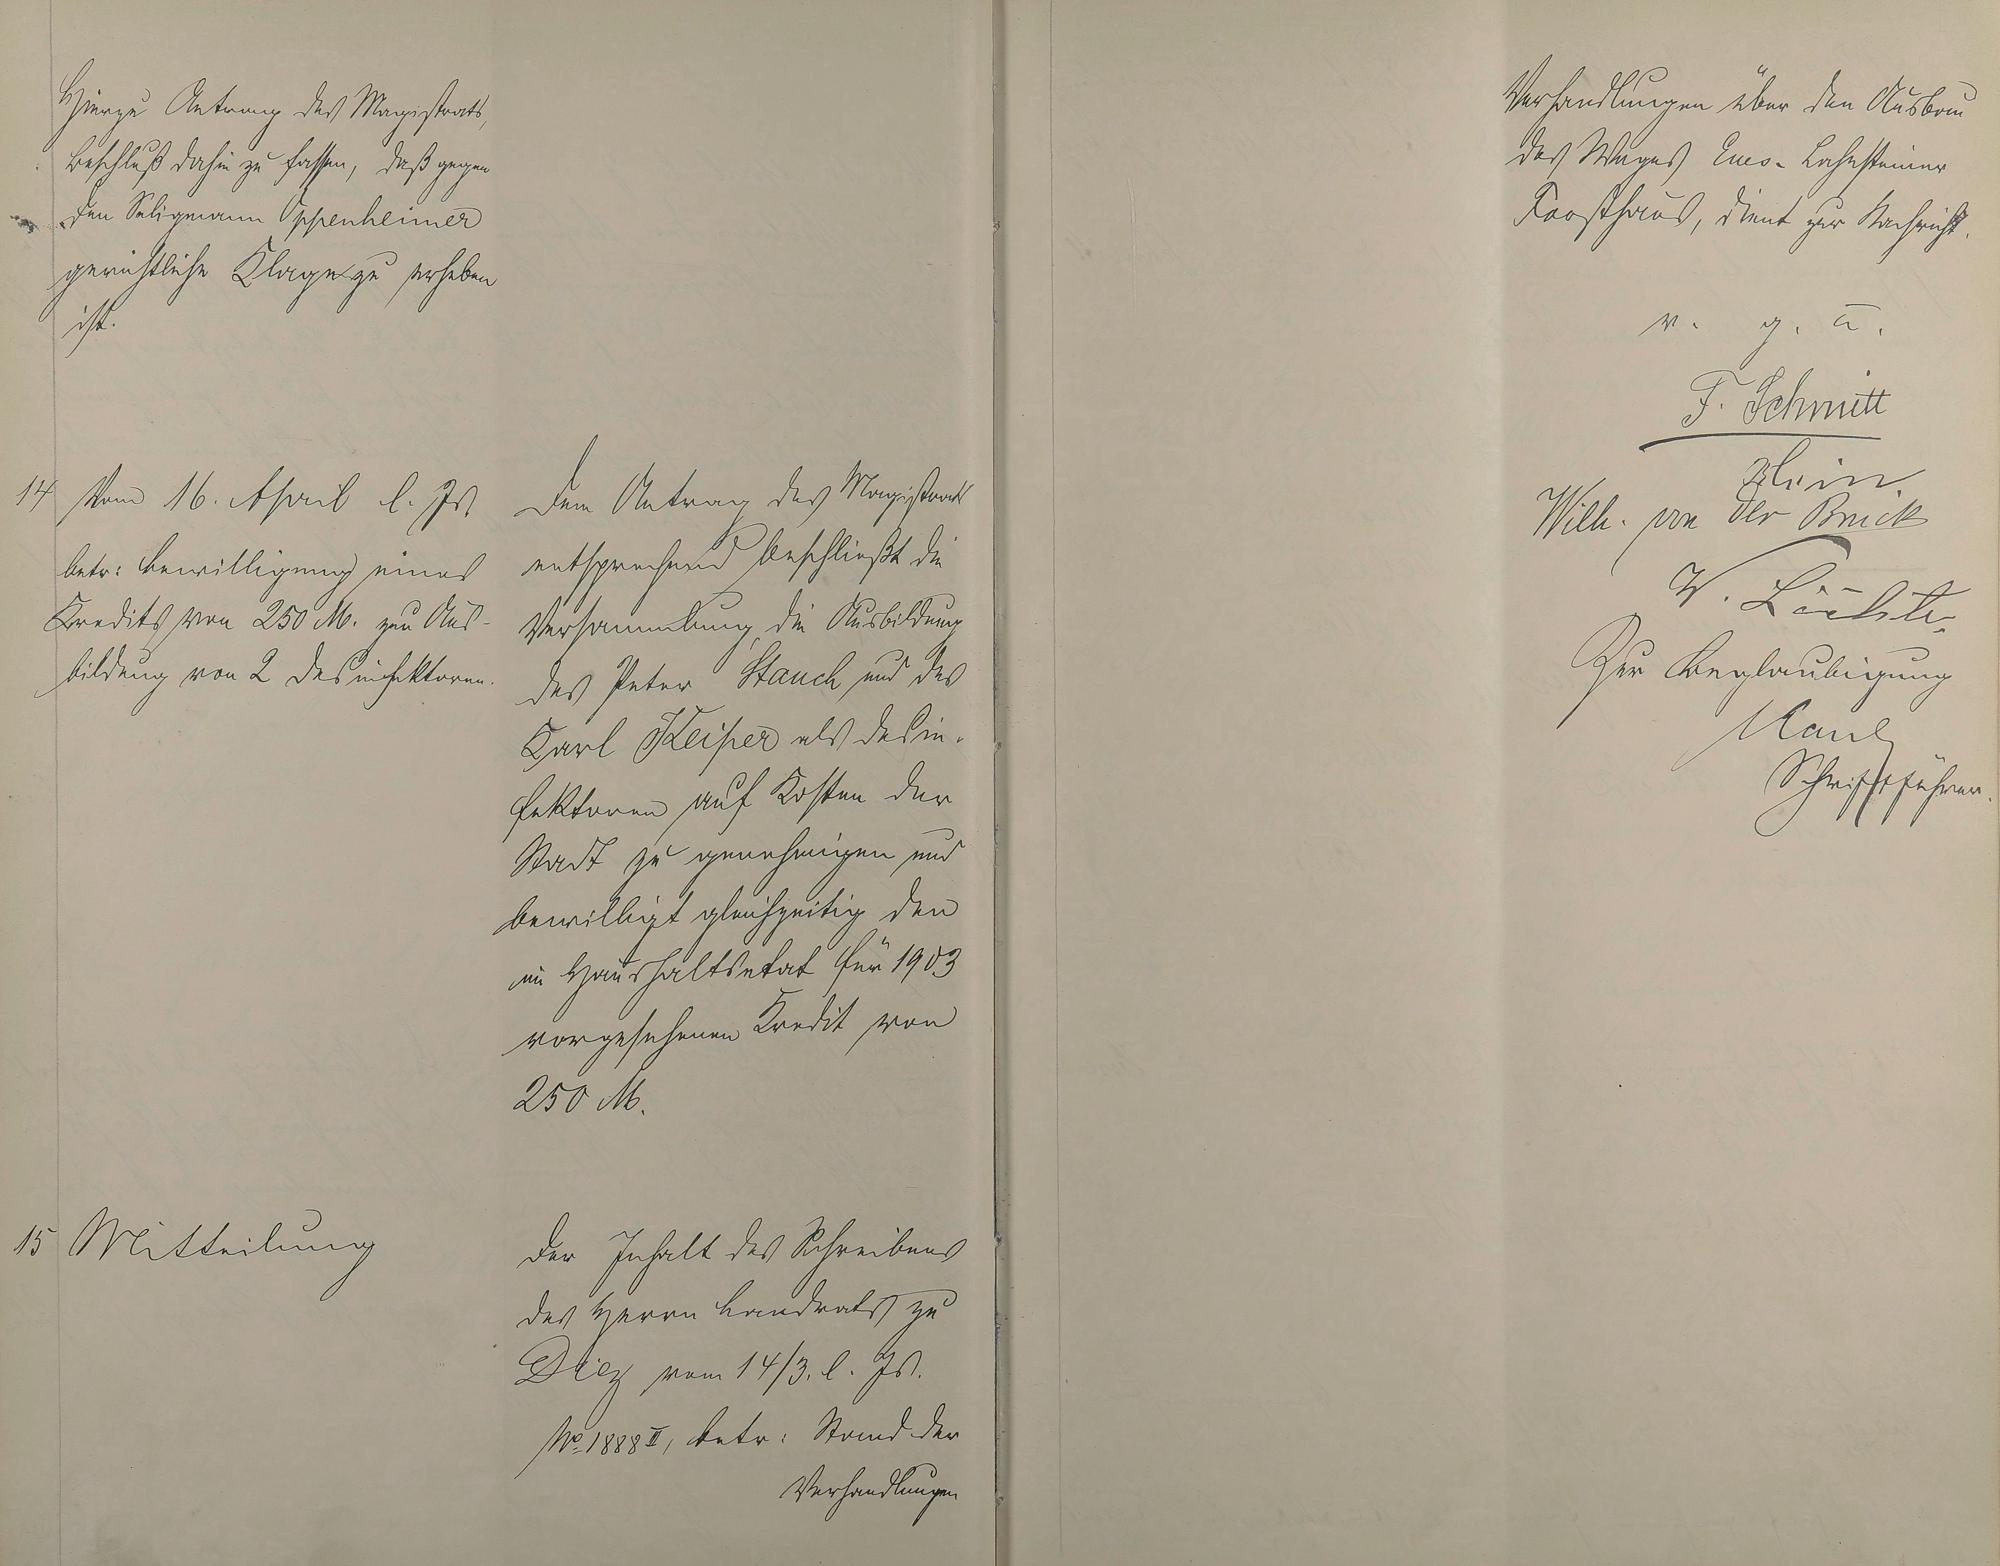 Hierzu Antrag des Magistrats,
Beschluß dahin zu fassen, daß gegen
den Seligmann Oppenheimer
gerichtliche Klage zu erheben
ist.
14 Vom 16. April l. Js.
betr: Bewilligung eines
Kredits von 250 M. zur Aus-
bildung von 2 Desinfektoren.
Dem Antrag des Magistrats
entsprechend beschließt die
Versammlung die Ausbildung
des Peter Stauch und des
Karl Keiper als Desin-
fektoren auf Kosten der
Stadt zu genehmigen und
bewilligt gleichzeitig den
im Haushaltsetat für 1903
vorgesehenen Kredit von
250 M.
15 Mitteilung
Der Inhalt des Schreibens
des Herrn Landrats zu
Diez vom 14/3. l. Js.
No. 1888 II, betr: Stand der
Verhandlungen
Verhandlungen über den Ausbau
des Weges Ems-Lahnsteiner
Forsthaus, dient zur Nachricht.
v. g. u.
F. Schmitt
Wilh. von der Brück
Zur Beglaubigung
Schriftführer.